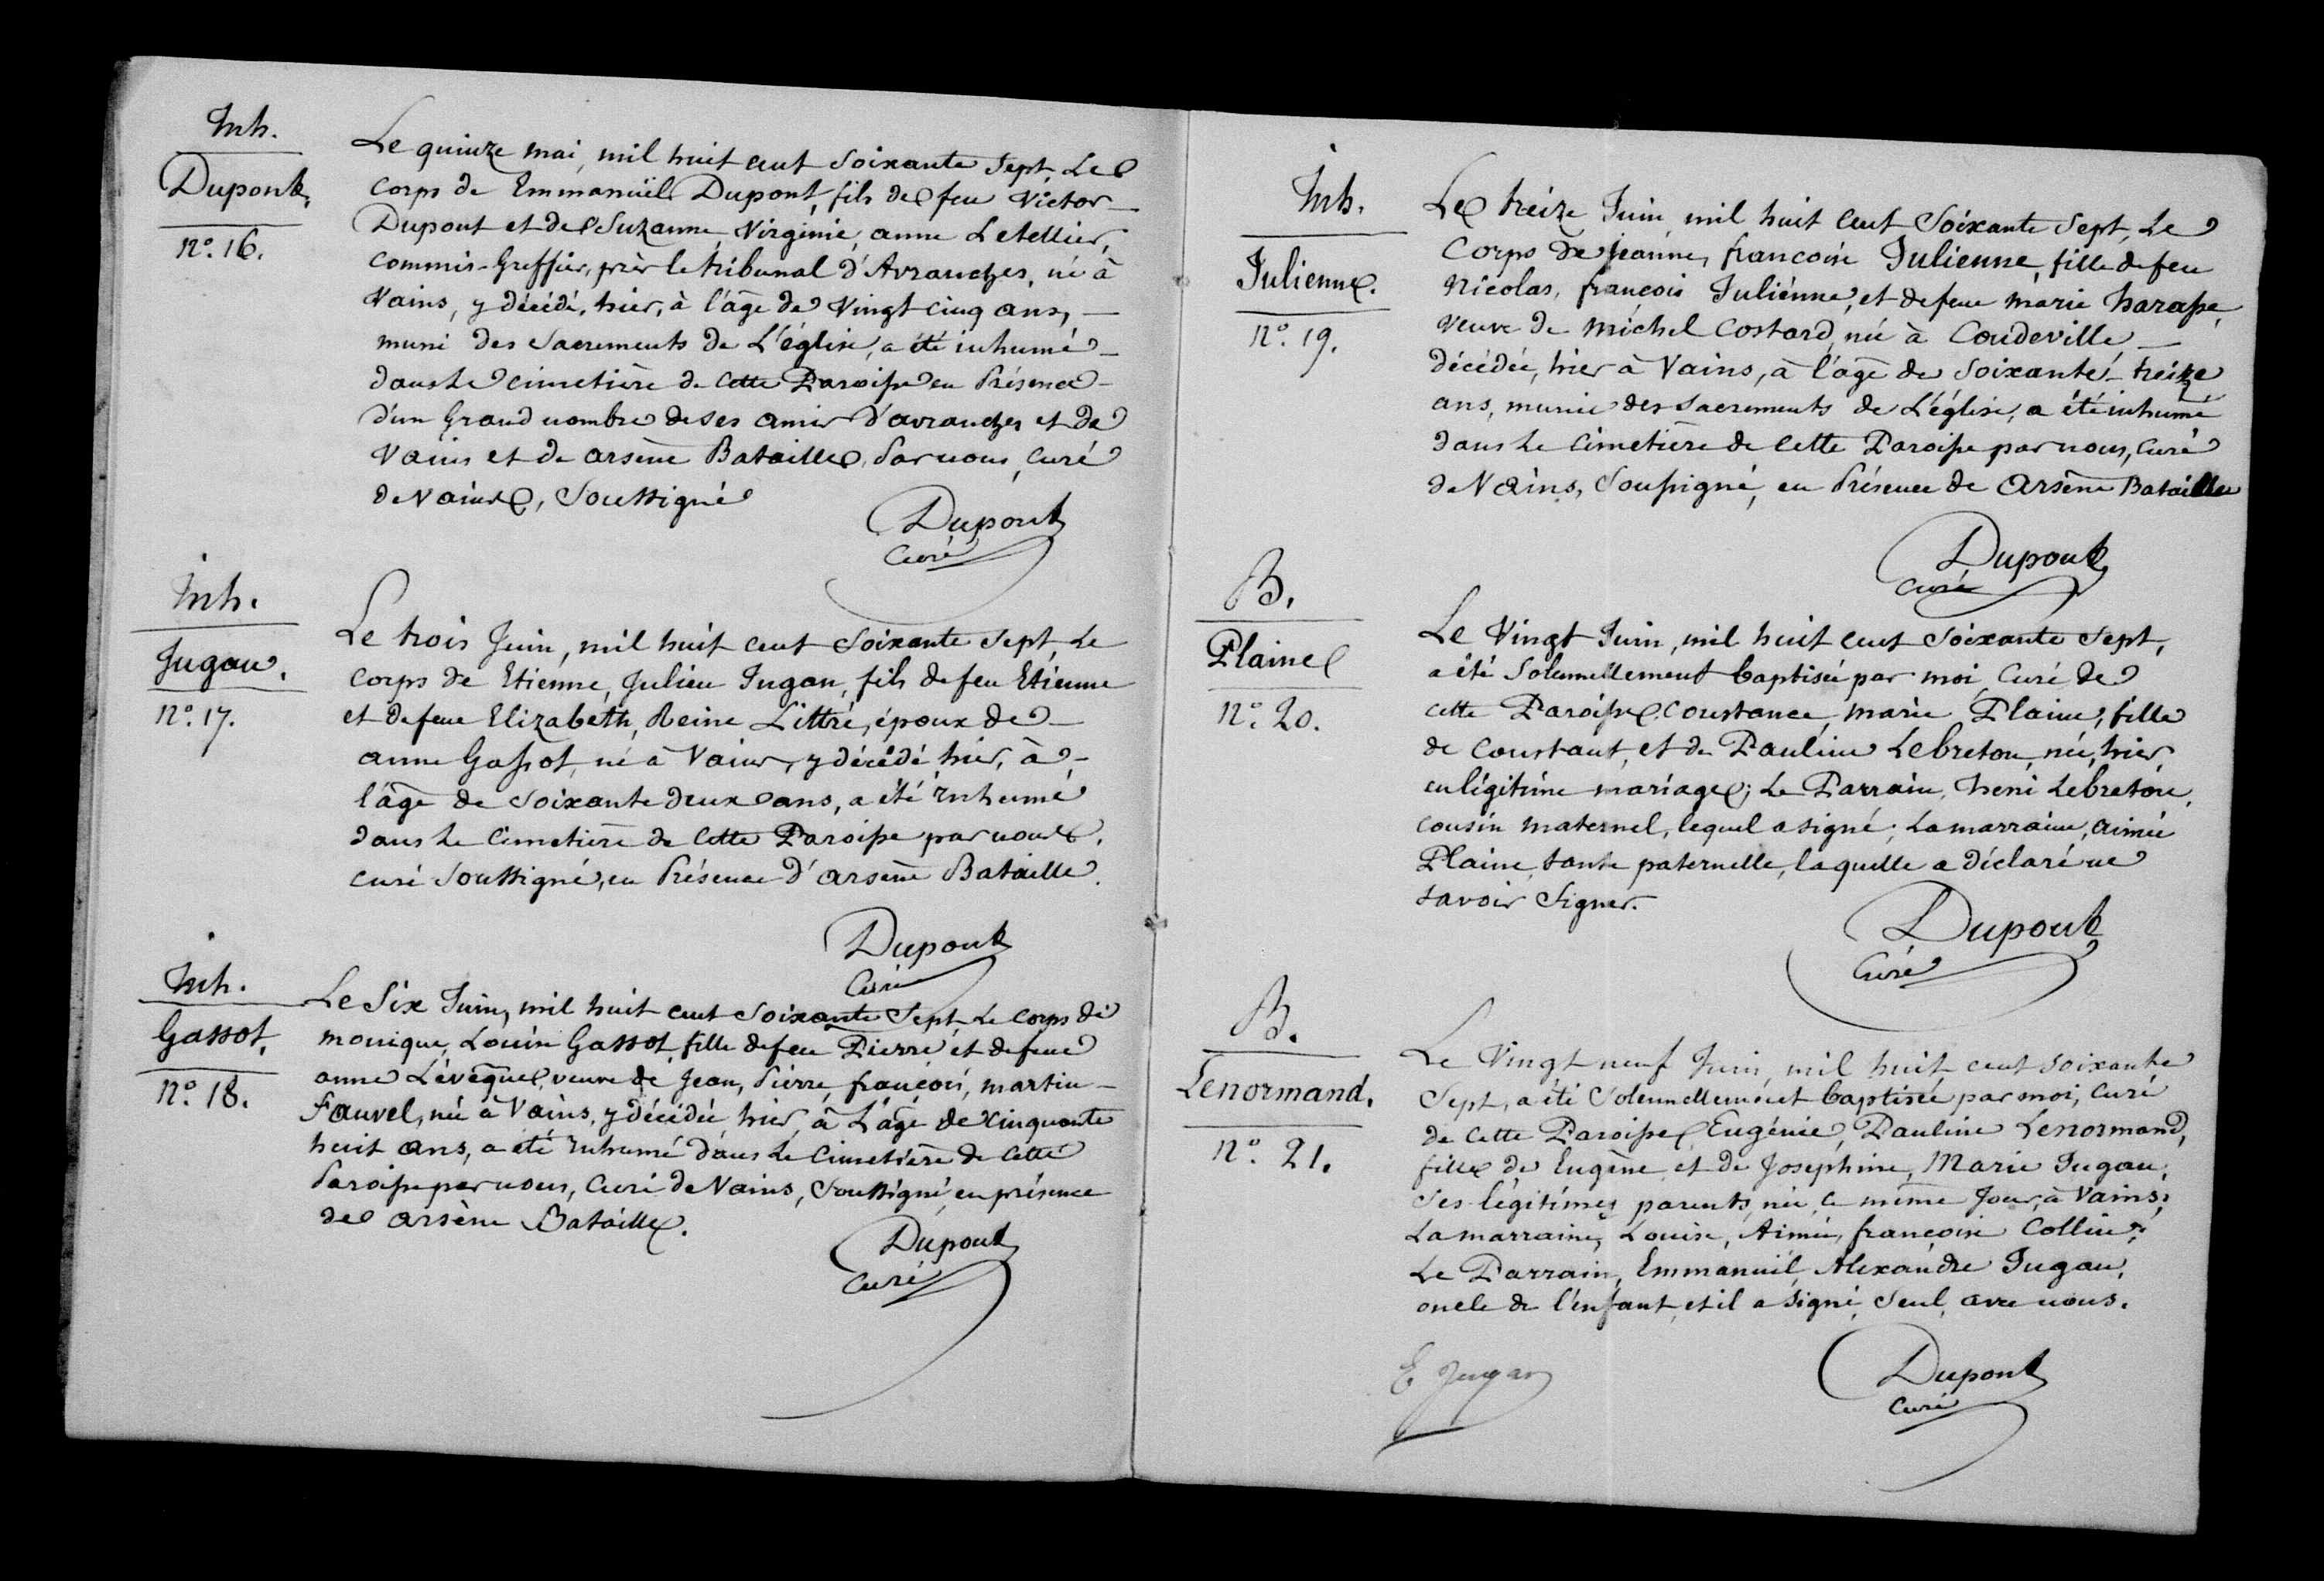 Inh.
Dupont.
n°. 16.
Le quinze mai, mil huit cent Soixante Sept, Le
corps de Emmanuël Dupont, fils de feu Victor
Dupont et de Suzanne, Virginie, anne Letellier,
commis-Greffier, près le tribunal d'Avranches, né à
Vains, y décédé, hier, à l'âge de Vingt cinq ans,
muni des Sacrements de L'église, a été inhumé
dans Le cimetière de cette Paroisse en Présence
d'un Grand nombre de ses amis d'avranches et de
Vains et de arsène Bataille, Par nous, Curé
de Vains, Soussigné
Dupont
Curé
Inh.
Jugan.
n°. 17.
Le trois Juin, mil huit cent Soixante Sept, Le
corps de Etienne, Julien Jugan, fils de feu Etienne
et de feue Elizabeth, Reine Littré, époux de
anne Gassot, né à Vains, y décédé, hier, à
l'âge de Soixante deux ans, a été Inhumé
dans Le Cimetière de cette Paroisse par nous,
curé Soussigné, en Présence d'arsène Bataille.
Dupont
Curé
Inh.
Gassot.
n°. 18.
Le Six Juin, mil huit cent Soixante Sept, Le corps de
monique, Louise Gassot, fille de feu Pierre et de feue
anne Lévêque, veuve de Jean, Pierre, françois, martin
Fauvel, née à Vains, y décédée, hier, à L'âge de Cinquante
huit ans, a été Inhumé dans Le Cimetière de cette
Paroisse par nous, Curé de Vains, Soussigné, en présence
de arsène Bataille.
Dupont
Curé
Inh.
Julienne.
n°. 19.
Le treize Juin, mil huit cent Soixante Sept, Le
Corps de jeanne, francoise Julienne, fille de feu
Nicolas, françois Julienne, et de feue marie harasse,
veuve de michel Costard, née à Coudeville,
décédée, hier à Vains, à l'âge de Soixante-treize
ans, munie des Sacrements de L'église, a été inhumé
dans Le Cimetière de cette Paroisse par nous, Curé
de Vains, Soussigné, en Présence de Arsène Bataille
Dupont
Curé
B.
Plaine
n°. 20.
Le Vingt Juin, mil huit cent Soixante Sept,
a été Solennellement baptisée par moi, Curé de
cette Paroisse, Constance, marie Plaine, fille
de Constant, et de Pauline Lebreton, née, hier,
en légitime mariage; Le Parrain, heni Lebreton,
cousin maternel, lequel a signé; La marraine, Aimée
Plaine, tante paternelle, laquelle a déclaré ne
savoir Signer.
Dupont
Curé
B.
Lenormand.
n°. 21.
Le Vingt neuf Juin, mil huit cent soixante
Sept, a été Solennellement baptisée par moi, Curé
de cette Paroisse, Eugénie, Pauline Lenormand,
fille de Eugène et de Josephine, Marie Jugan,
Ses légitimes parents, née, ce même Jour, à Vains;
La marraine, Louise, Aimée, françoise Collin;
Le Parrain, Emmanuël, Alexandre Jugan,
oncle de l'enfant, et il a signé, Seul, avec nous.
E Jugan
Dupont
Curé